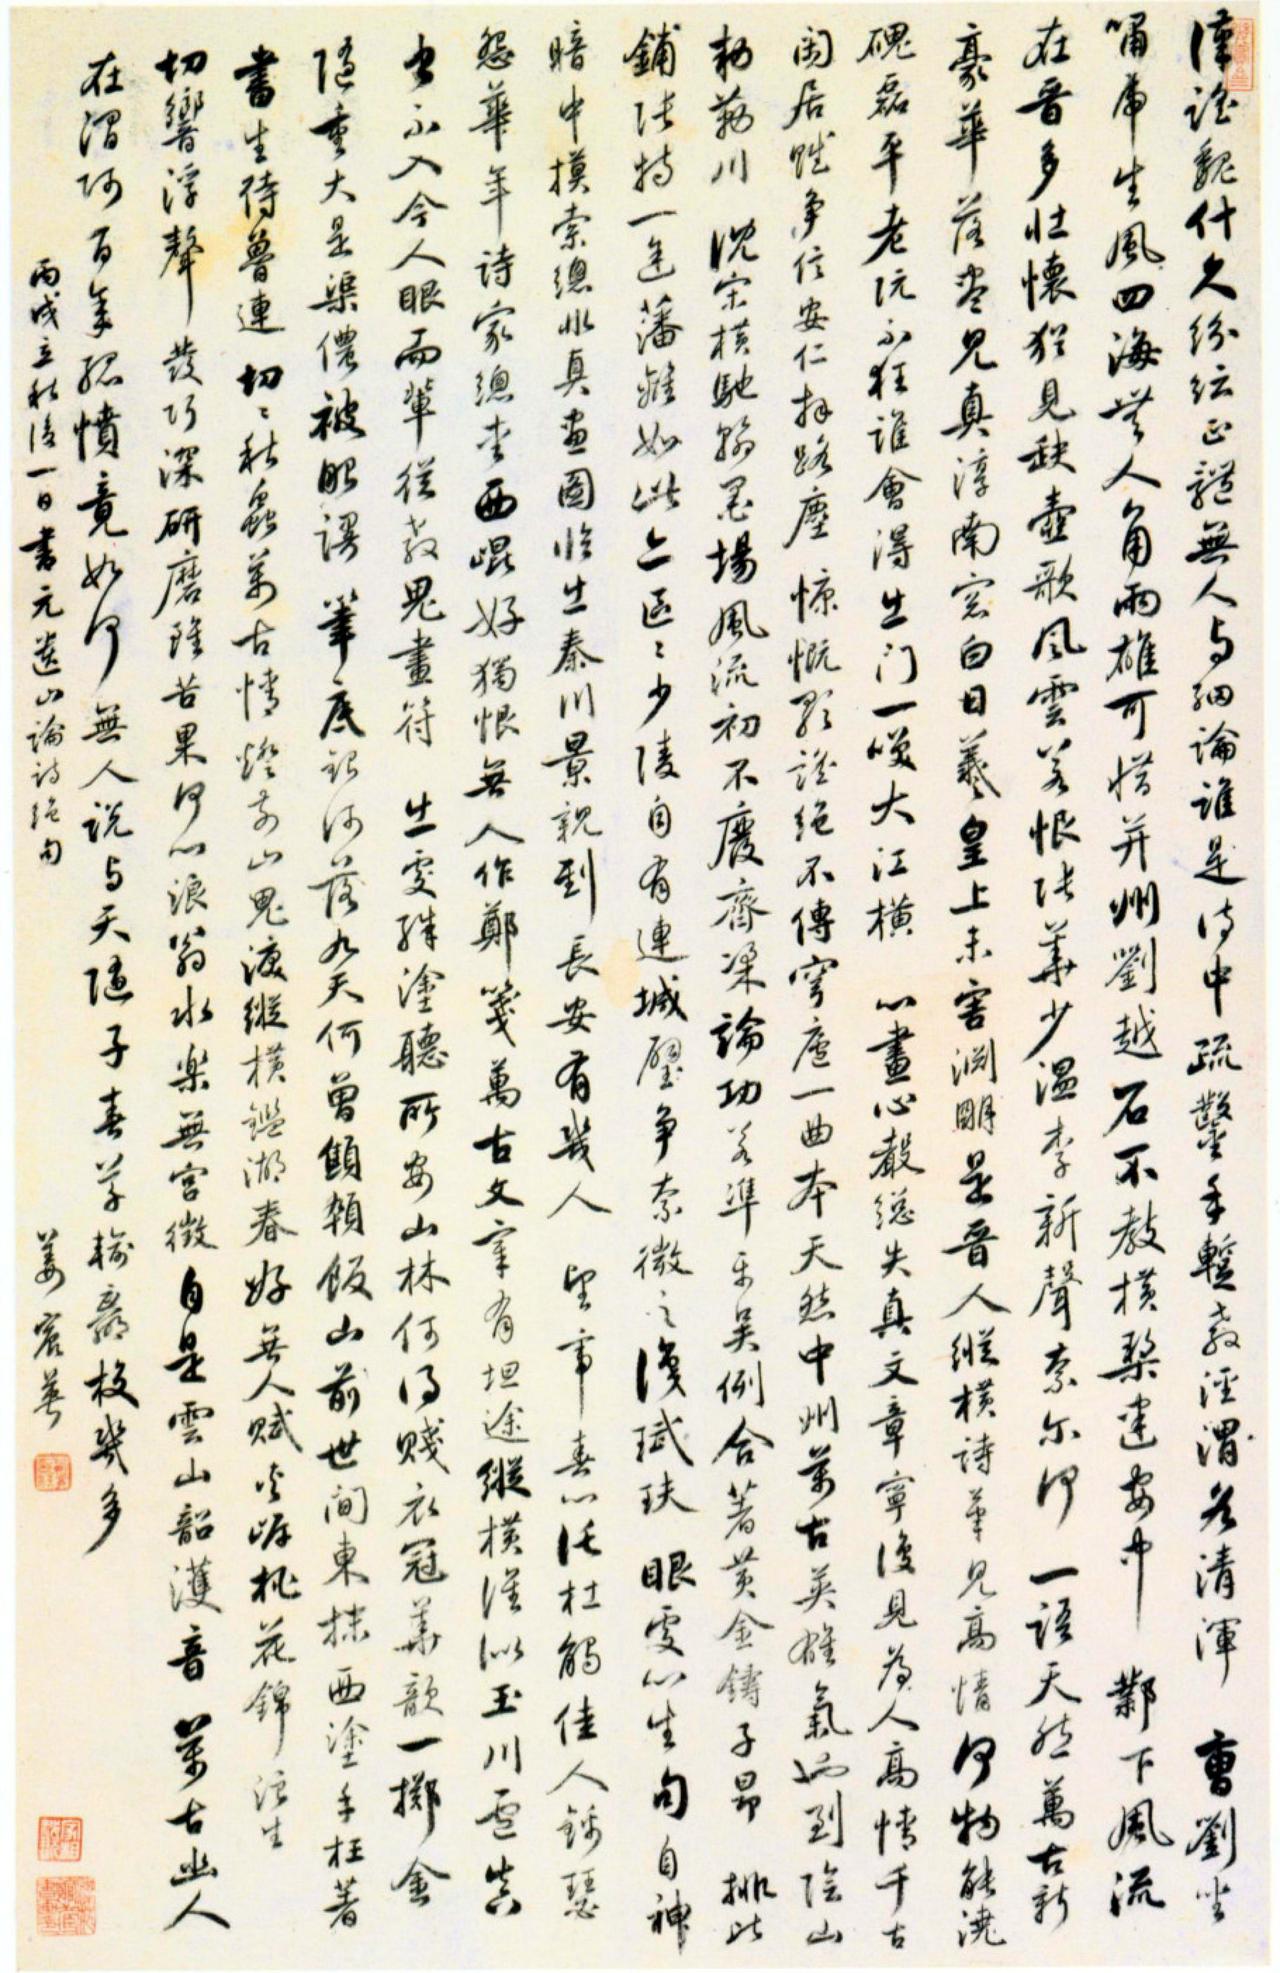 漢謠魏什久紛紜正體無人与細論誰是詩中疏鑿手暫教涇渭各清渾 曹劉坐
嘯虎生風四海無人角兩雄可惜并州劉越石不教橫槊建安中 鄴下風流
在晉多壯懷猶見缺壺歌風雲若恨張華少溫李新聲奈尔何 一語天然萬古新
豪華落盡見真淳南窗白日羲皇上未害淵明是晉人縱橫詩筆見高情何物能澆
磈磊平老阮不狂誰會得出門一笑大江橫 心畫心聲總失真文章寧復見為人高情千古
閑居賦爭信安仁拜路塵 慷慨歌謠絕不傳穹廬一曲本天然中州萬古英雄氣也到陰山
勑勒川 沈宋橫馳翰墨場風流初不廢齊梁論功若準平吳例合著黃金鑄子昂 排比
鋪張特一途藩籬如此亦區〻少陵自有連城璧爭奈微之識碔砆 眼處心生句自神
暗中摸索總非真畫圖臨出秦川景親到長安有幾人 望帝春心托杜鵑佳人錦瑟
怨華年詩家總愛西崑好獨恨無人作鄭箋萬古文章有坦途縱橫誰似玉川盧真
書不入今人眼兒輩從教鬼畫符 出處殊塗聽所安山林何得賤衣冠華歆一擲金
隨重大是渠儂被眼謾 筆底銀河落九天何曾顦顇飯山前世間東抹西塗手枉著
書生待魯連 切〻秋蟲萬古情燈前山鬼淚縱橫鑑湖春好無人賦夾岸桃花錦浪生
切響浮聲發巧深研磨雖苦果何心浪翁水樂無宮徵自是雲山韶濩音 萬古幽人
在澗阿百年孤憤竟如何無人說与天隨子春草輸贏校幾多
丙戌立秋後一日書元遺山論詩絕句
姜宸英